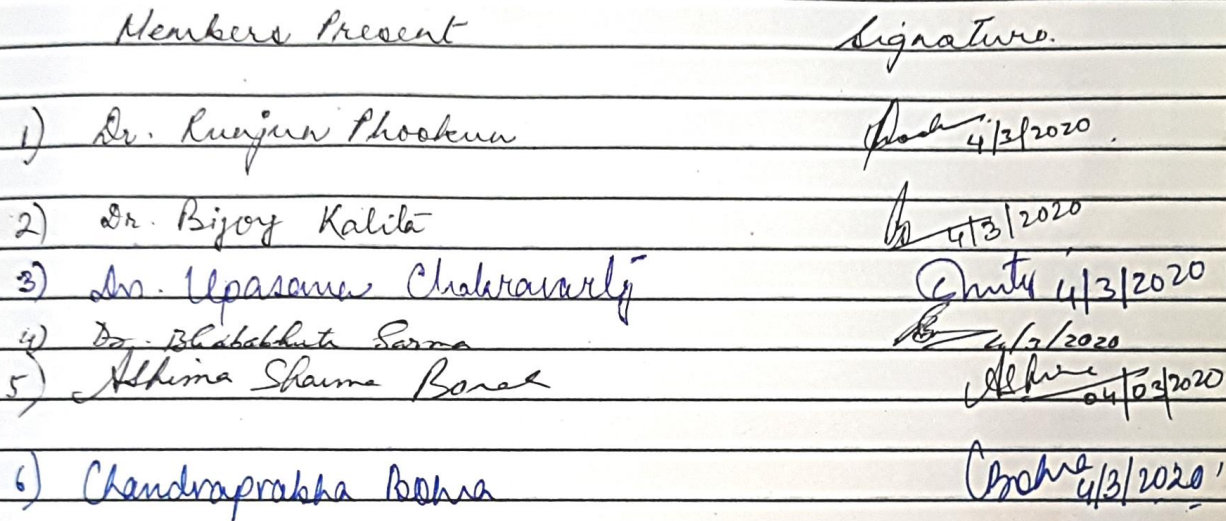 Members Present Signature.
1) Dr. Runjun Phookun 4/3/2020.
2) Dr. Bijoy Kalita 4/3/2020
3) Dr. Upasana Chakravarty 4/3/2020
4) Dr. Bhababhuti Sarma 4/3/2020
5) Ashima Sharma Borah 04/03/2020
6) Chandraprabha Bohra CBohra 4/3/2020